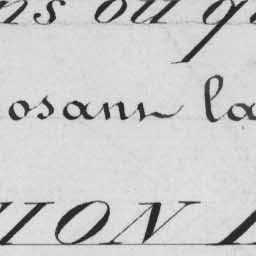 ns ou qu
osans la
ION